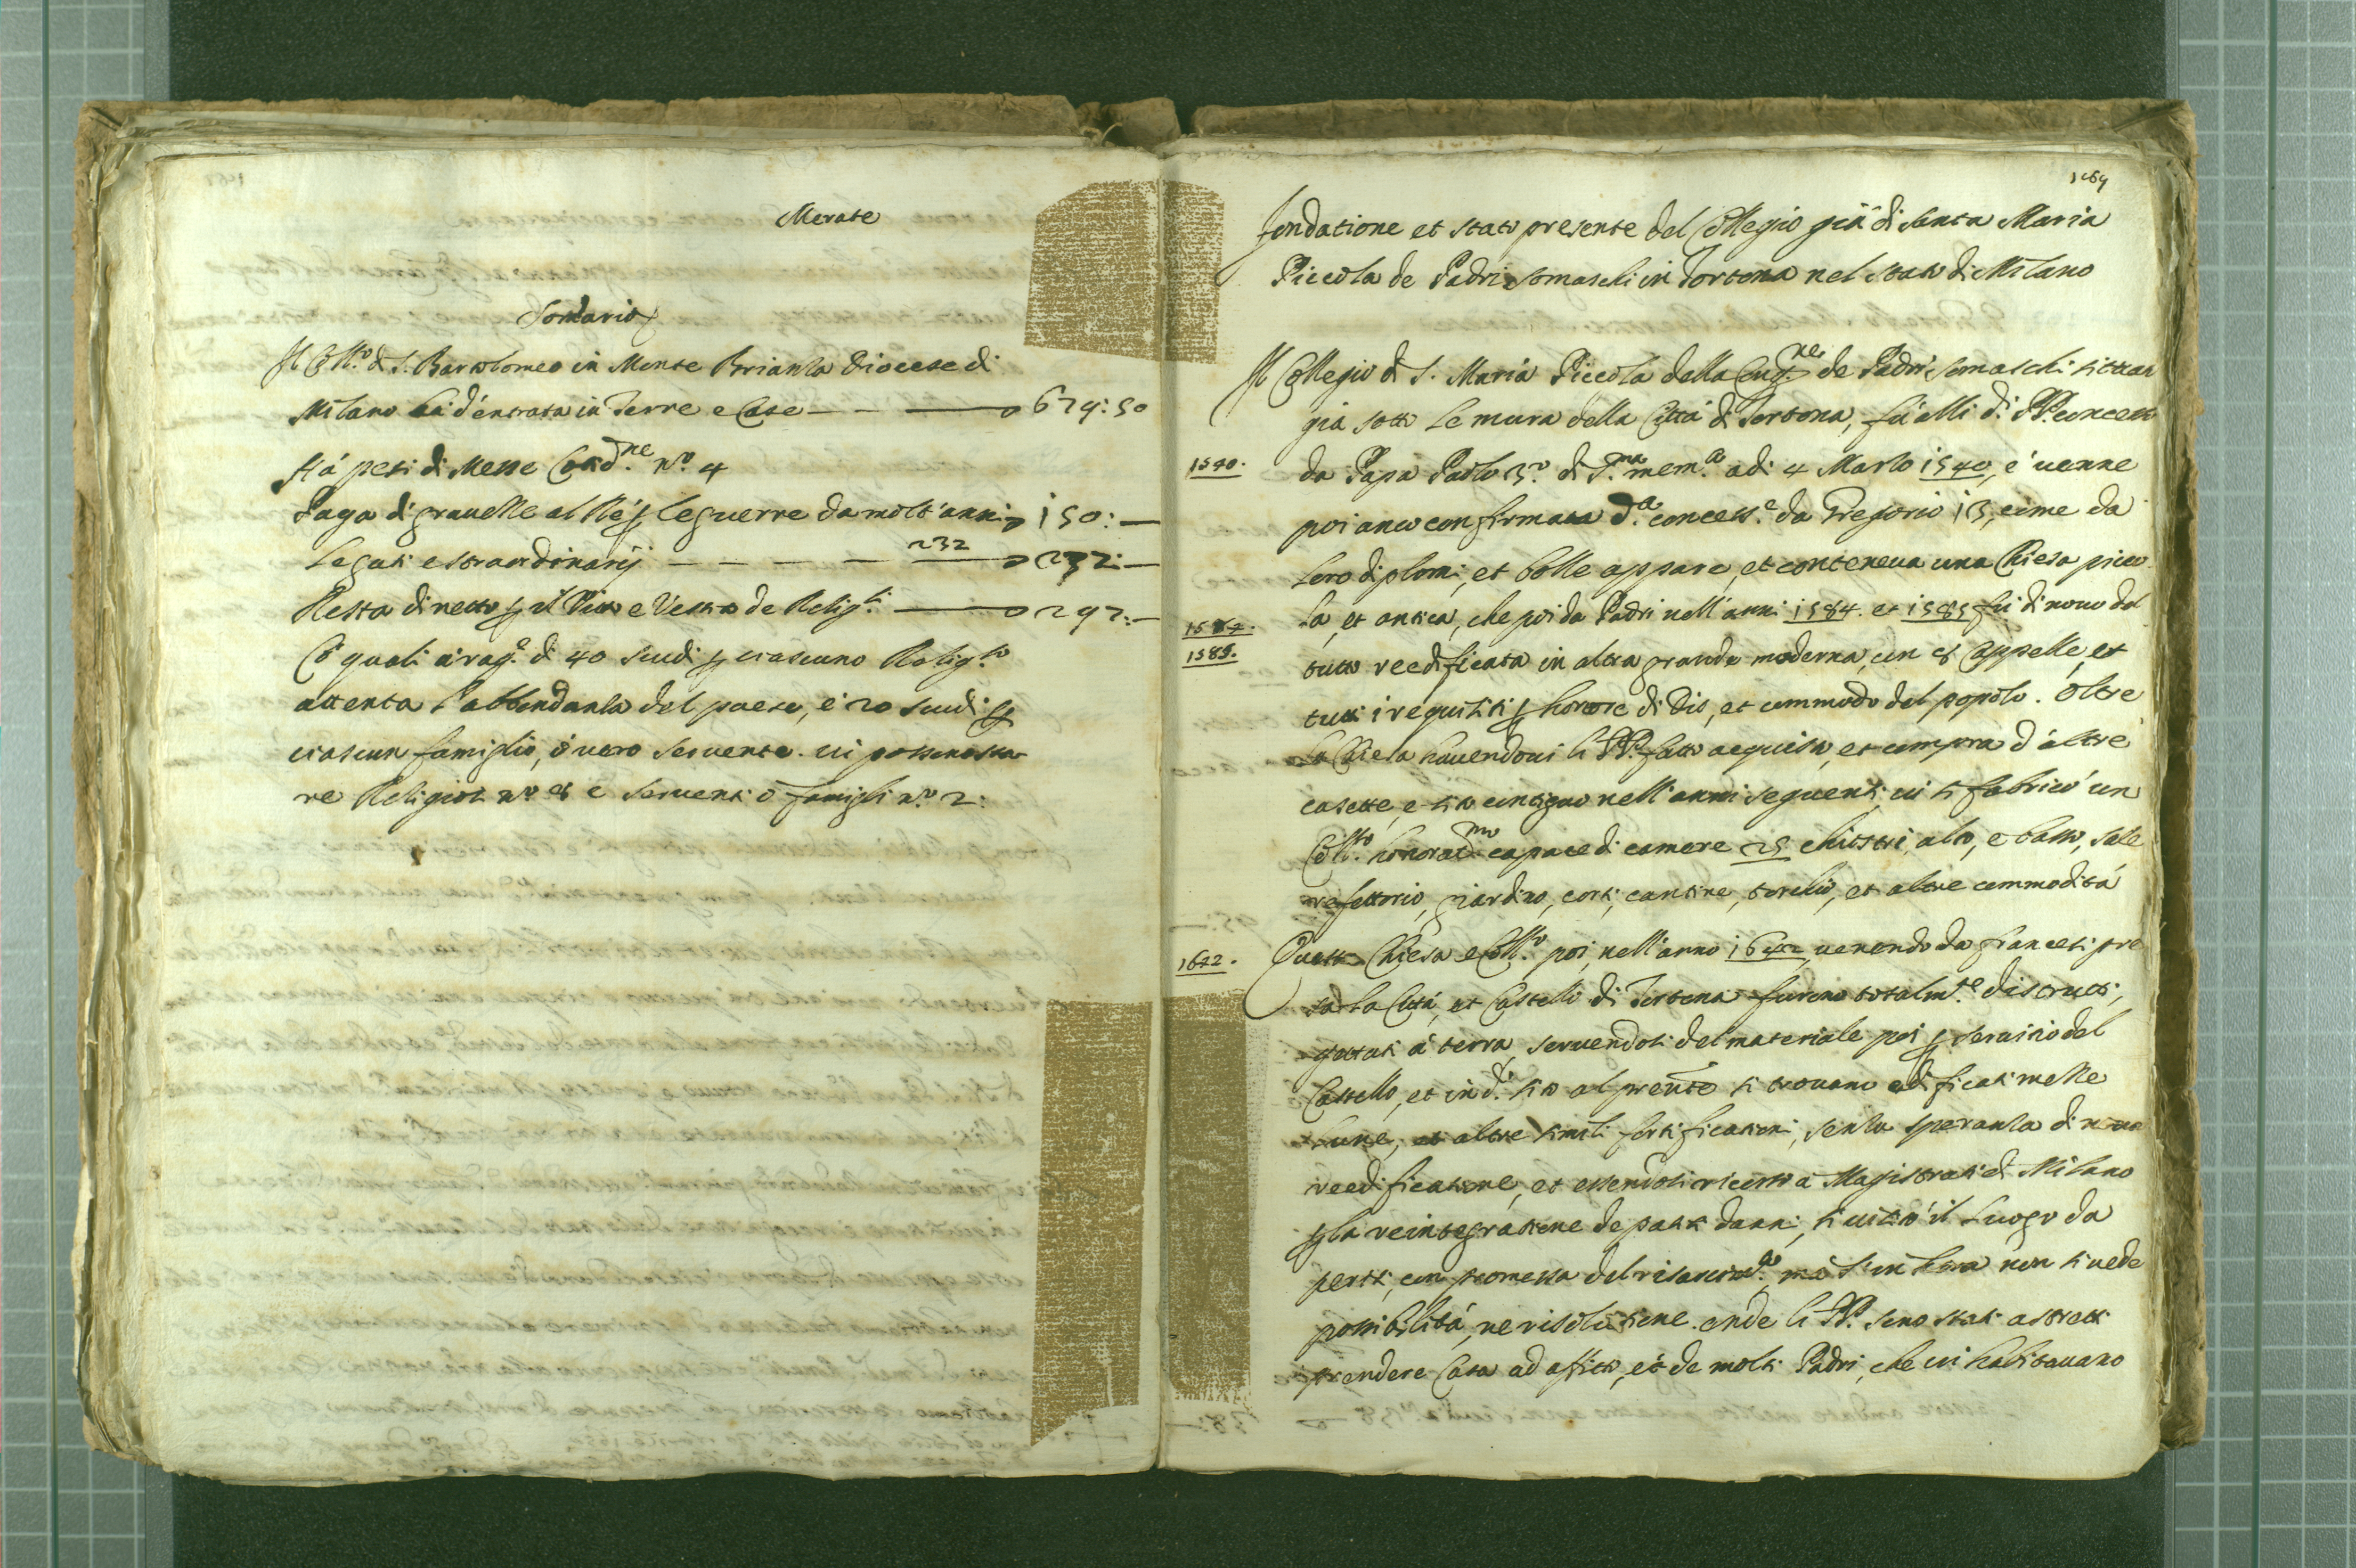 Merate
Somario
Il Coll.o di S. Bartolomeo in Monte Brianza Diocese di
Milano hà d'entrata in Terre e Case — 674:50
Hà pesi di Messe Cotid.ne n.o 4
Paga di gravezze al Rè per le guerre da molt'anni 150:—
Legati e straordinarij — 232 232:—
Resta di netto per il Vitto e Vesto de Relig.si — 292:—
Co quali à rag.e di 40 scudi per ciascuno Relig.so
attenta l'abbondanza del paese, e 20 scudi per
ciascun famiglio, ò vero servente. vi possono sta
re Religiosi n.o 6 e serventi ò famigli n.o 2:
1469
Fondatione et stato presente del Collegio già di Santa Maria
Piccola de Padri Somaschi in Tortona nel stato di Milano
Il Collegio di S. Maria Piccola della Cong.ne de Padri Somaschi situar
già sotto le mura della Città di Tortona, fù alli d.i PP. concesso
1540. da Papa Paolo 3.o di S.ma mem.a adi 4 Marzo 1540, e venne
poi anco confirmata d.a concess.e da Gregorio 13, come da
loro diplomi, et bolle appare, et conteneva una Chiesa picco
1584. la, et antica, che poi da Padri nell'anni 1584. et 1585 fù di novo del
1585. tutto reedificata in altra grande moderna, con 6 Cappelle, et
tutti i requisiti per honore di Dio, et commodo del popolo. Oltre
la Chiesa havendovi li PP. fatto acquisto, et compra d'altre
casette, e sito contiguo nell'anni seguenti, vi si fabricò un
Coll.o honorat.mo capace di camere 25 chiostri, alto, e basso, sale
refettorio, giardino, corti, cantine, torchio, et altre commodità
1642. Questa Chiesa e Coll.o poi, nell'anno 1642, venendo da francesi pre
sa la Città, et Castello di Tortona furono totalm.te distrutti,
gettati à terra, servendosi del materiale poi per servitio del
Castello, et in d.o sito al prente si trovano edificati mezze
Lune, et altre simili fortificationi, senza speranza di nova
reedificatione, et essendosi ricorso a Magistrati di Milano
per la reintegratione de patiti danni, si visitò il Luogo da
periti, con promessa del risarcim.to, mà sin hora non si vede
possibilità, ne risolutione. onde li PP. sono stati astretti
prendere Casa ad affitto, et de molti Padri, che vi habitavano